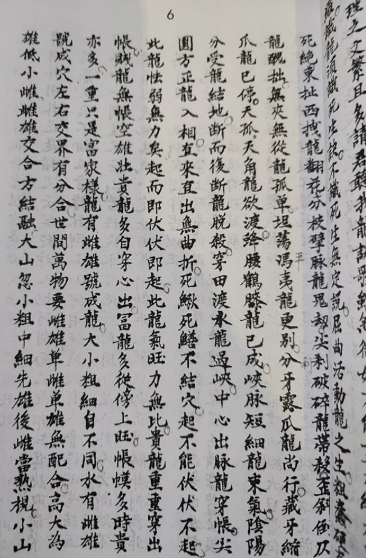 死絕東扯西拽龍翻花分枝擘脉龍鬼刼尖利破碎龍帶殺歪斜倒仄
龍醜拙無夾無從龍孤單坦蕩馮夷龍更別分牙露爪龍尚行藏牙縮
爪龍已停天孤天角龍欲渡蜂腰鶴膝龍已成峽脉短細龍束氣陰陽
分受龍結地斷而後斷龍脫殺穿田渡水龍過峽中心出脉龍穿帳尖
圓方正龍入相直來直出無曲折死鰍死鱔不結穴起不能伏伏不起
此龍怯弱無力矣起而即伏伏即起此龍氣旺力無比貴龍重重穿出
帳賤龍無帳空雄壮貴龍多自穿心出富龍多從傍上旺帳幙多時貴
亦多一重只是富家樣龍有雌雄號成龍大小粗細自不同水有雌雄
號成穴左右交界有分合世間萬物要雌雄单雌单雄無配合高大為
雄低小雌雌雄交合方結融大山忽小粗中細先雄後雌當熟視小山
6